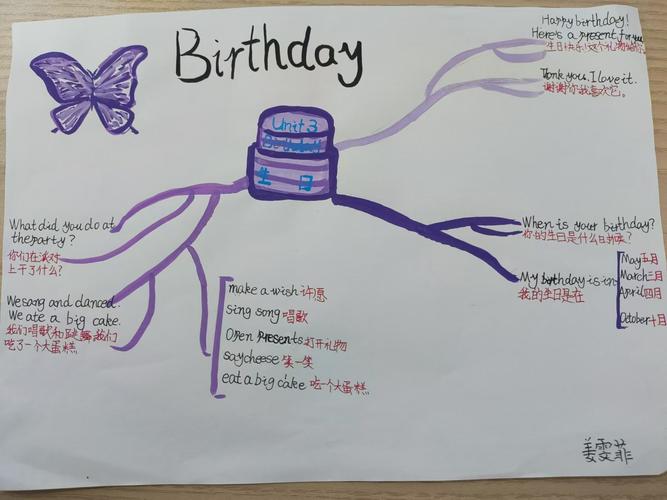 Birthday
Happy birthday!
Here's a present for you
生日快乐!这个礼物给你
Thank you. I love it.
谢谢你我喜欢它。
Unit 3
Birthday
生 日
When is your birthday?
你的生日是什么时候?
My birthday is in
我的生日是在
May五月
March三月
April四月
October十月
What did you do at
the party?
你们在派对
上干了什么?
We sang and danced.
We ate a big cake.
我们唱歌和跳舞我们
吃了一个大蛋糕
make a wish 许愿
sing song 唱歌
Open presents打开礼物
say cheese 笑一笑
eat a big cake 吃一个大蛋糕
姜雯菲